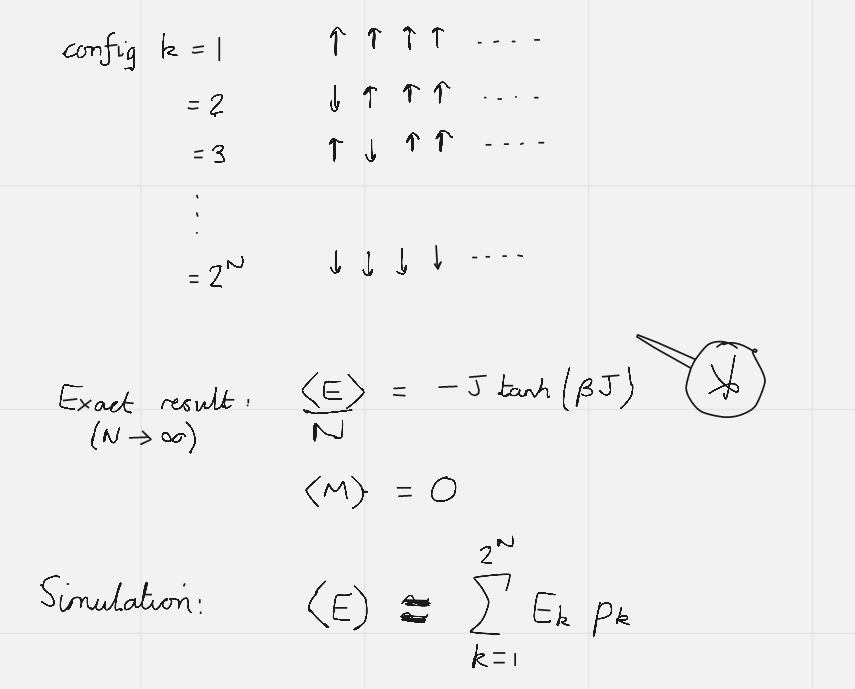 config k = 1 ↑ ↑ ↑ ↑ ----
= 2 ↓ ↑ ↑ ↑ ----
= 3 ↑ ↓ ↑ ↑ ----
⋮
= 2^N ↓ ↓ ↓ ↓ ----
Exact result: <E>/N = -J tanh(βJ) *
(N → ∞)
<M> = 0
Simulation: <E> ≈ ∑_{k=1}^{2^N} E_k p_k